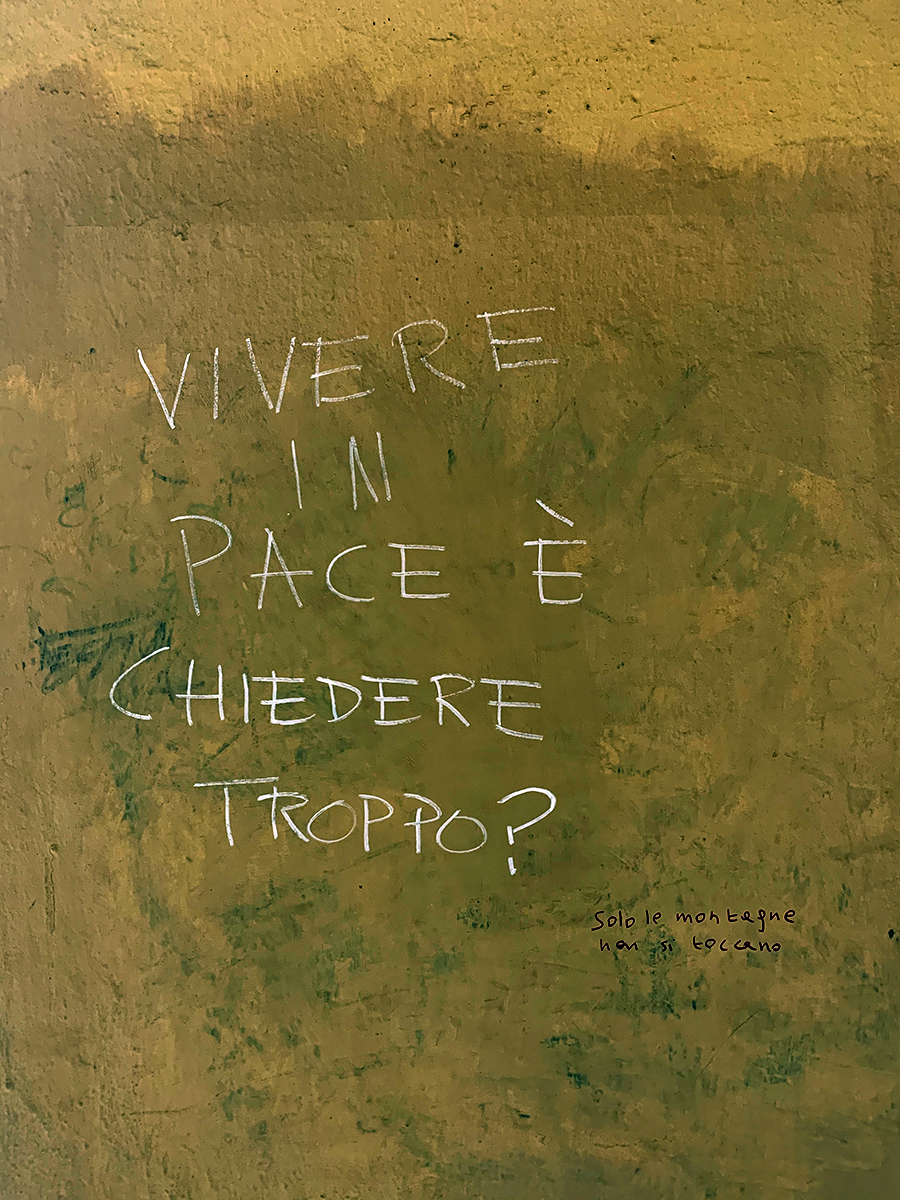 VIVERE
IN
PACE È
CHIEDERE
TROPPO?
Solo le montagne
non si toccano